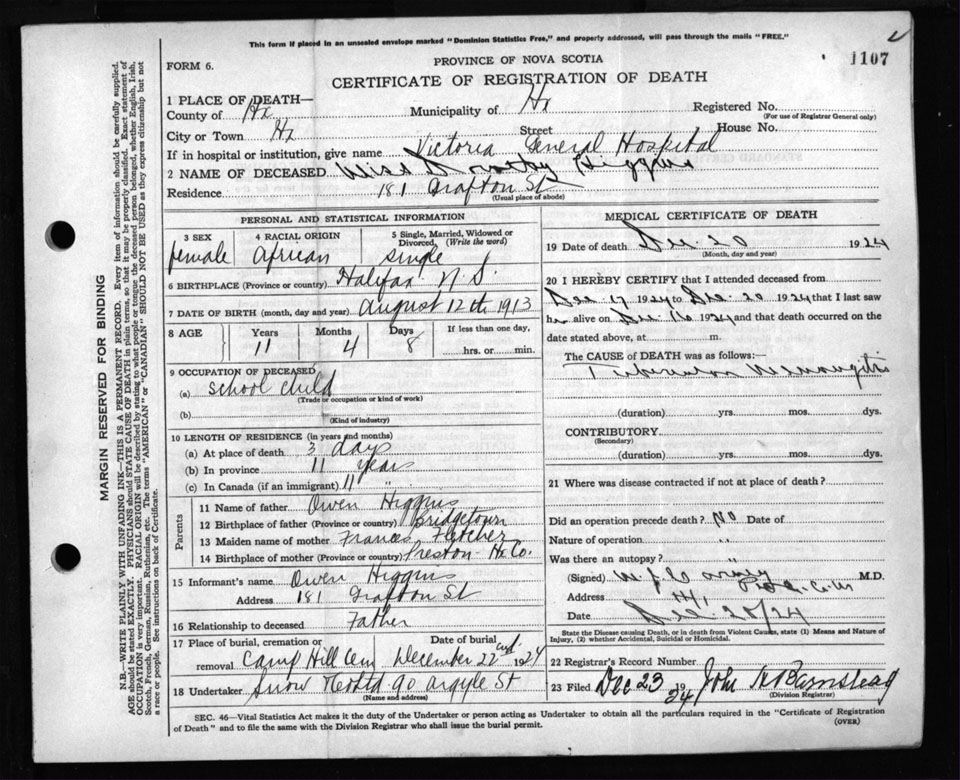 This form if placed in an unsealed envelope marked "Dominion Statistics Free," and properly addressed, will pass through the mails "FREE."
1107
FORM 6.
PROVINCE OF NOVA SCOTIA
CERTIFICATE OF REGISTRATION OF DEATH
1 PLACE OF DEATH—
County of Hx Municipality of Hx Registered No.
(For use of Registrar General only)
City or Town Hx Street House No.
If in hospital or institution, give name Victoria General Hospital
2 NAME OF DECEASED Miss Dorothy Higgins
Residence 181 Grafton St
(Usual place of abode)
PERSONAL AND STATISTICAL INFORMATION
3 SEX 4 RACIAL ORIGIN 5 Single, Married, Widowed or Divorced (Write the word)
female African single
6 BIRTHPLACE (Province or country) Halifax N.S.
7 DATE OF BIRTH (month, day and year) August 12th 1913
8 AGE Years Months Days If less than one day,
11 4 8 hrs. or min.
9 OCCUPATION OF DECEASED
(a) School child
(Trade or occupation or kind of work)
(b)
(Kind of industry)
10 LENGTH OF RESIDENCE (in years and months)
(a) At place of death 3 days
(b) In province 11 years
(c) In Canada (if an immigrant) 11 "
Parents
11 Name of father Owen Higgins
12 Birthplace of father (Province or country) Bridgetown
13 Maiden name of mother Frances Fletcher
14 Birthplace of mother (Province or country) Preston Hx Co.
15 Informant's name Owen Higgins
Address 181 Grafton St
16 Relationship to deceased Father
17 Place of burial, cremation or removal Camp Hill Cem Date of burial December 22nd 1924
18 Undertaker Snow 90 Argyle St
(Name and address)
MEDICAL CERTIFICATE OF DEATH
19 Date of death Dec 20 1924
(Month, day and year)
20 I HEREBY CERTIFY that I attended deceased from
Dec. 17 1924 to Dec. 20 1924 that I last saw
her alive on Dec 1924 and that death occurred on the
date stated above, at m.
The CAUSE OF DEATH was as follows:
Tubercular Meningitis
(duration) yrs. mos. dys.
CONTRIBUTORY
(Secondary)
(duration) yrs. mos. dys.
21 Where was disease contracted if not at place of death?
Did an operation precede death? No Date of
Nature of operation "
Was there an autopsy? "
(Signed) M.D.
Address
Date Dec. 20/24
State the Disease causing Death, or in death from Violent Causes, state (1) Means and Nature of
Injury, (2) whether Accidental, Suicidal or Homicidal.
22 Registrar's Record Number
23 Filed Dec 23 1924 John Barnstead
(Division Registrar)
SEC. 46—Vital Statistics Act makes it the duty of the Undertaker or person acting as Undertaker to obtain all the particulars required in the "Certificate of Registration
of Death" and to file the same with the Division Registrar who shall issue the burial permit.
(OVER)
MARGIN RESERVED FOR BINDING
N.B.—WRITE PLAINLY WITH UNFADING INK—THIS IS A PERMANENT RECORD. Every item of information should be carefully supplied.
AGE should be stated EXACTLY. PHYSICIANS should STATE CAUSE OF DEATH in plain terms, so that it may be properly classified. Exact statement of
OCCUPATION is very important. RACIAL ORIGIN will be described by stating to what people or tongue the deceased person belonged, whether English, Irish,
Scotch, French, German, Russian, Ruthenian, etc. The terms "AMERICAN" or "CANADIAN" SHOULD NOT BE USED as they express citizenship but not
a race or people. See instructions on back of Certificate.